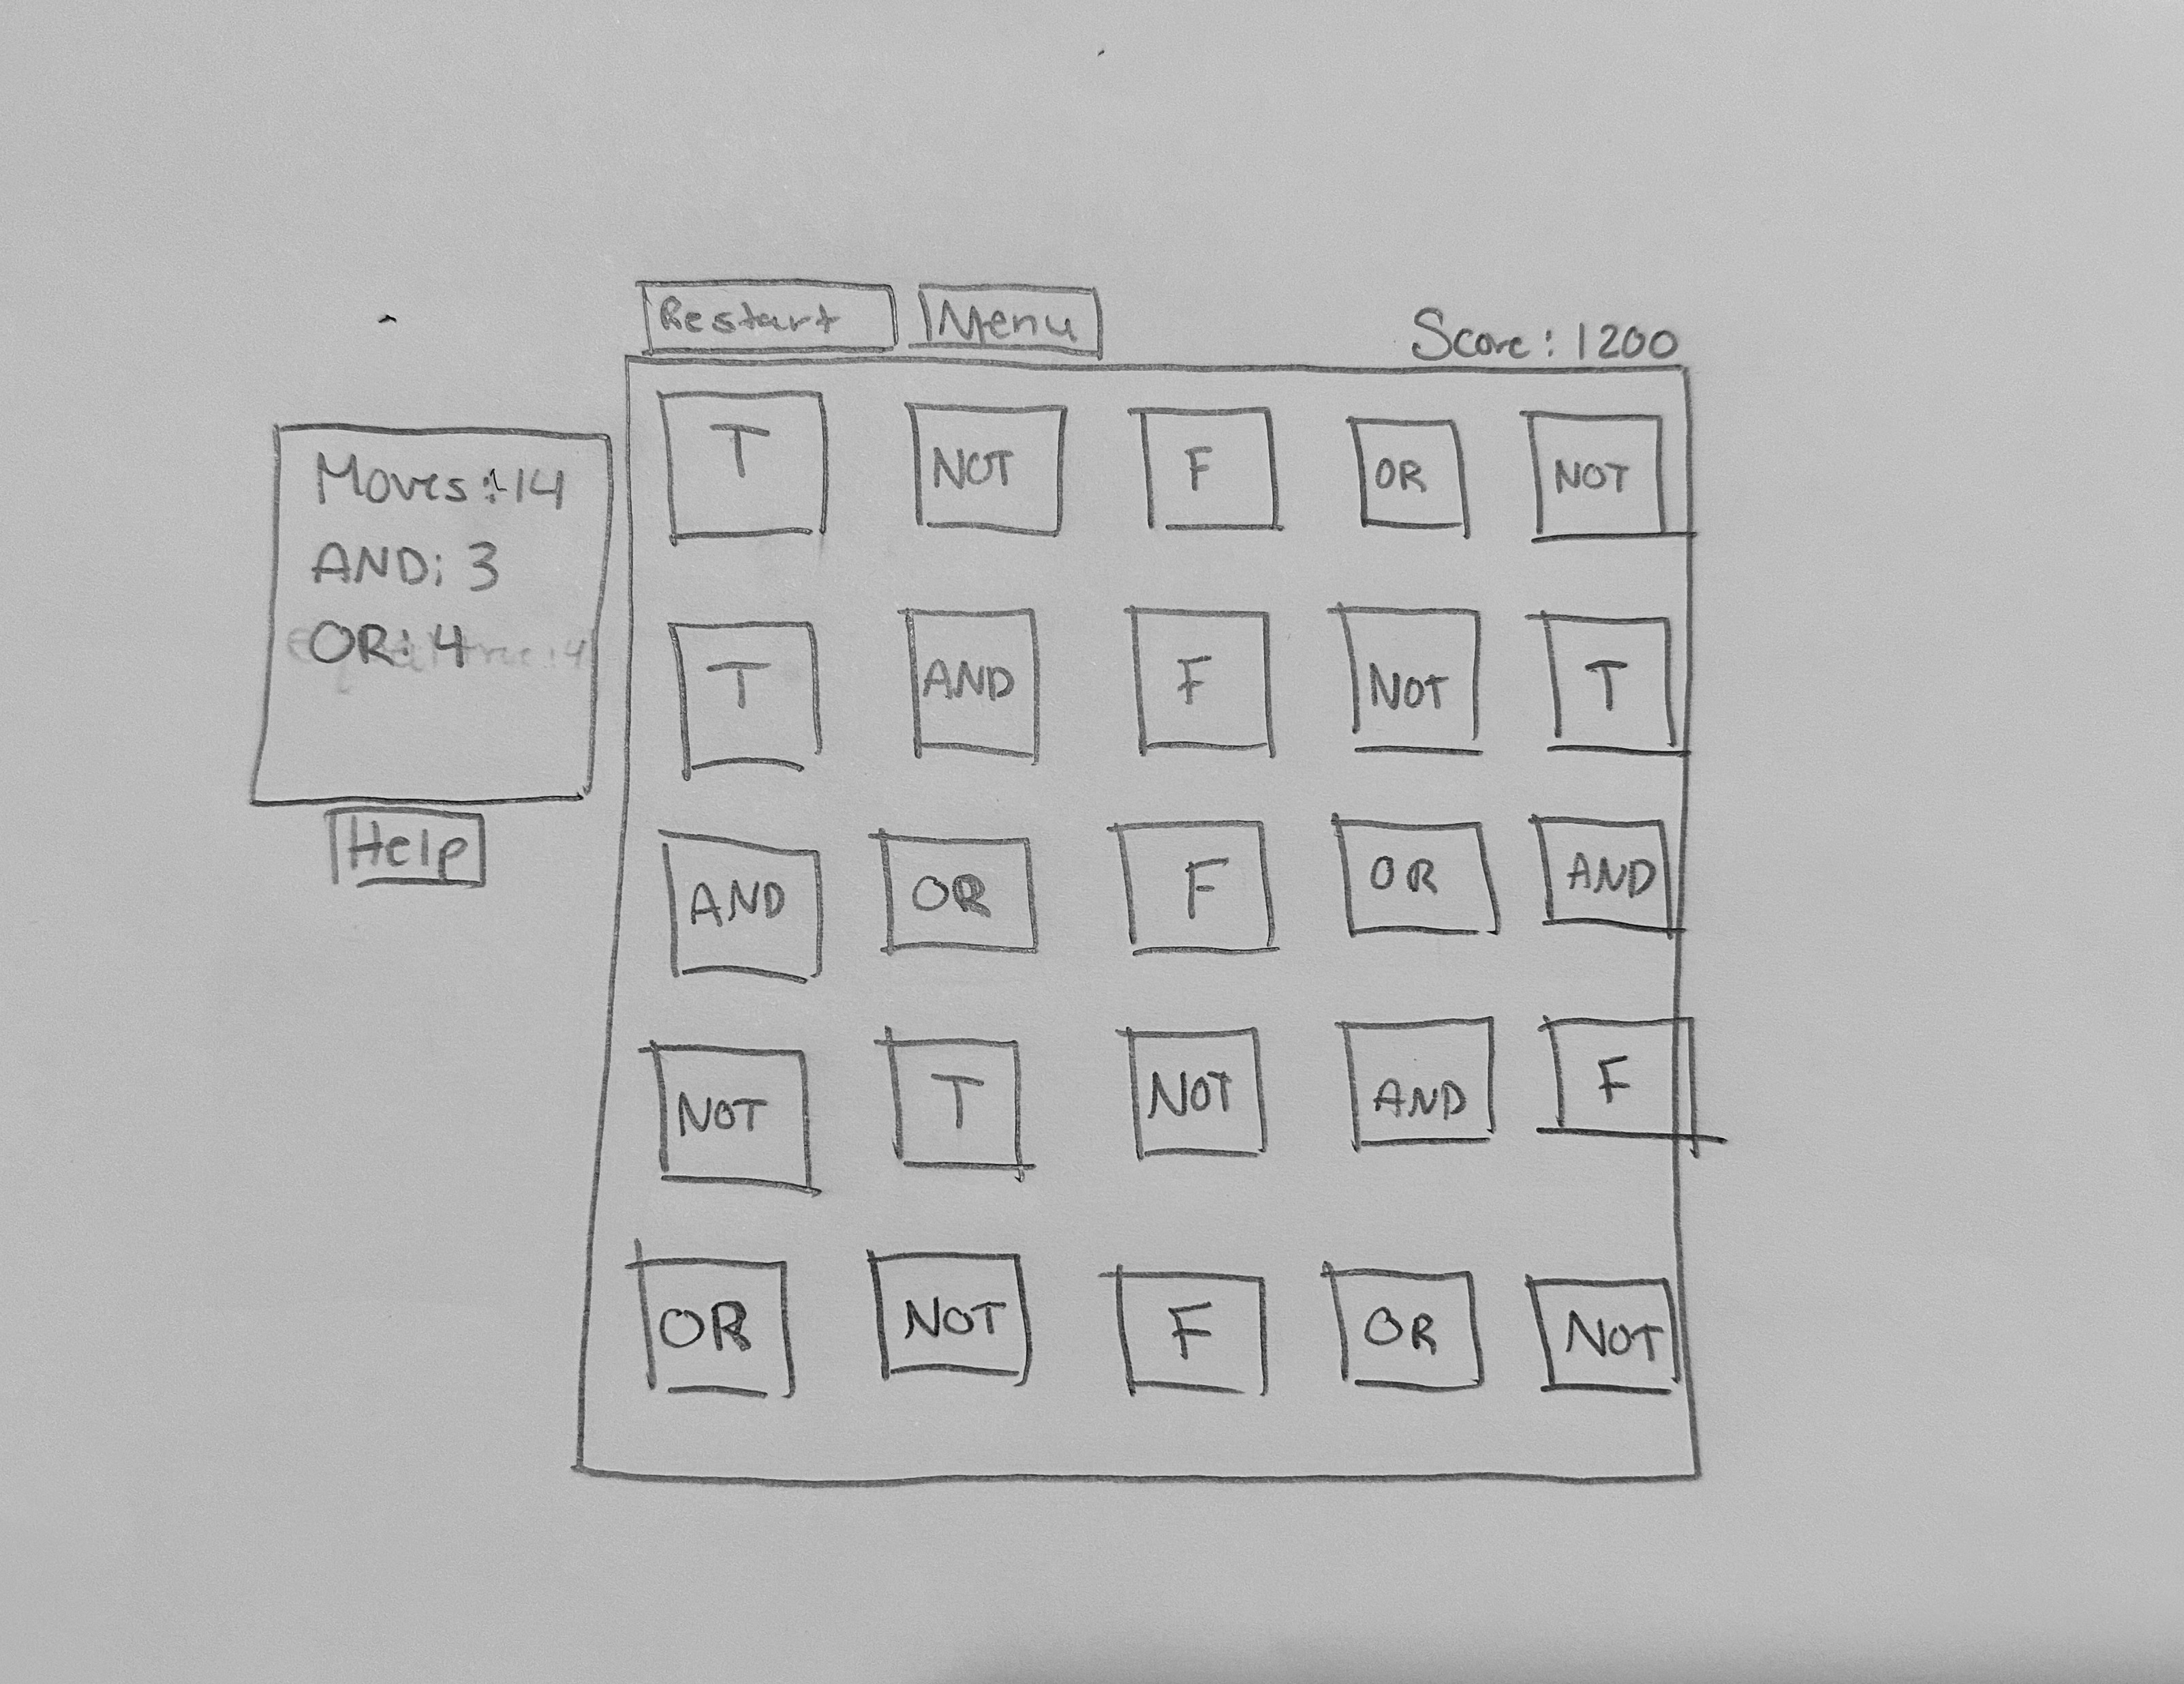 Restart Menu
Score: 1200
Moves: 14
AND: 3
OR: 4
Help
T NOT F OR NOT
T AND F NOT T
AND OR F OR AND
NOT T NOT AND F
OR NOT F OR NOT